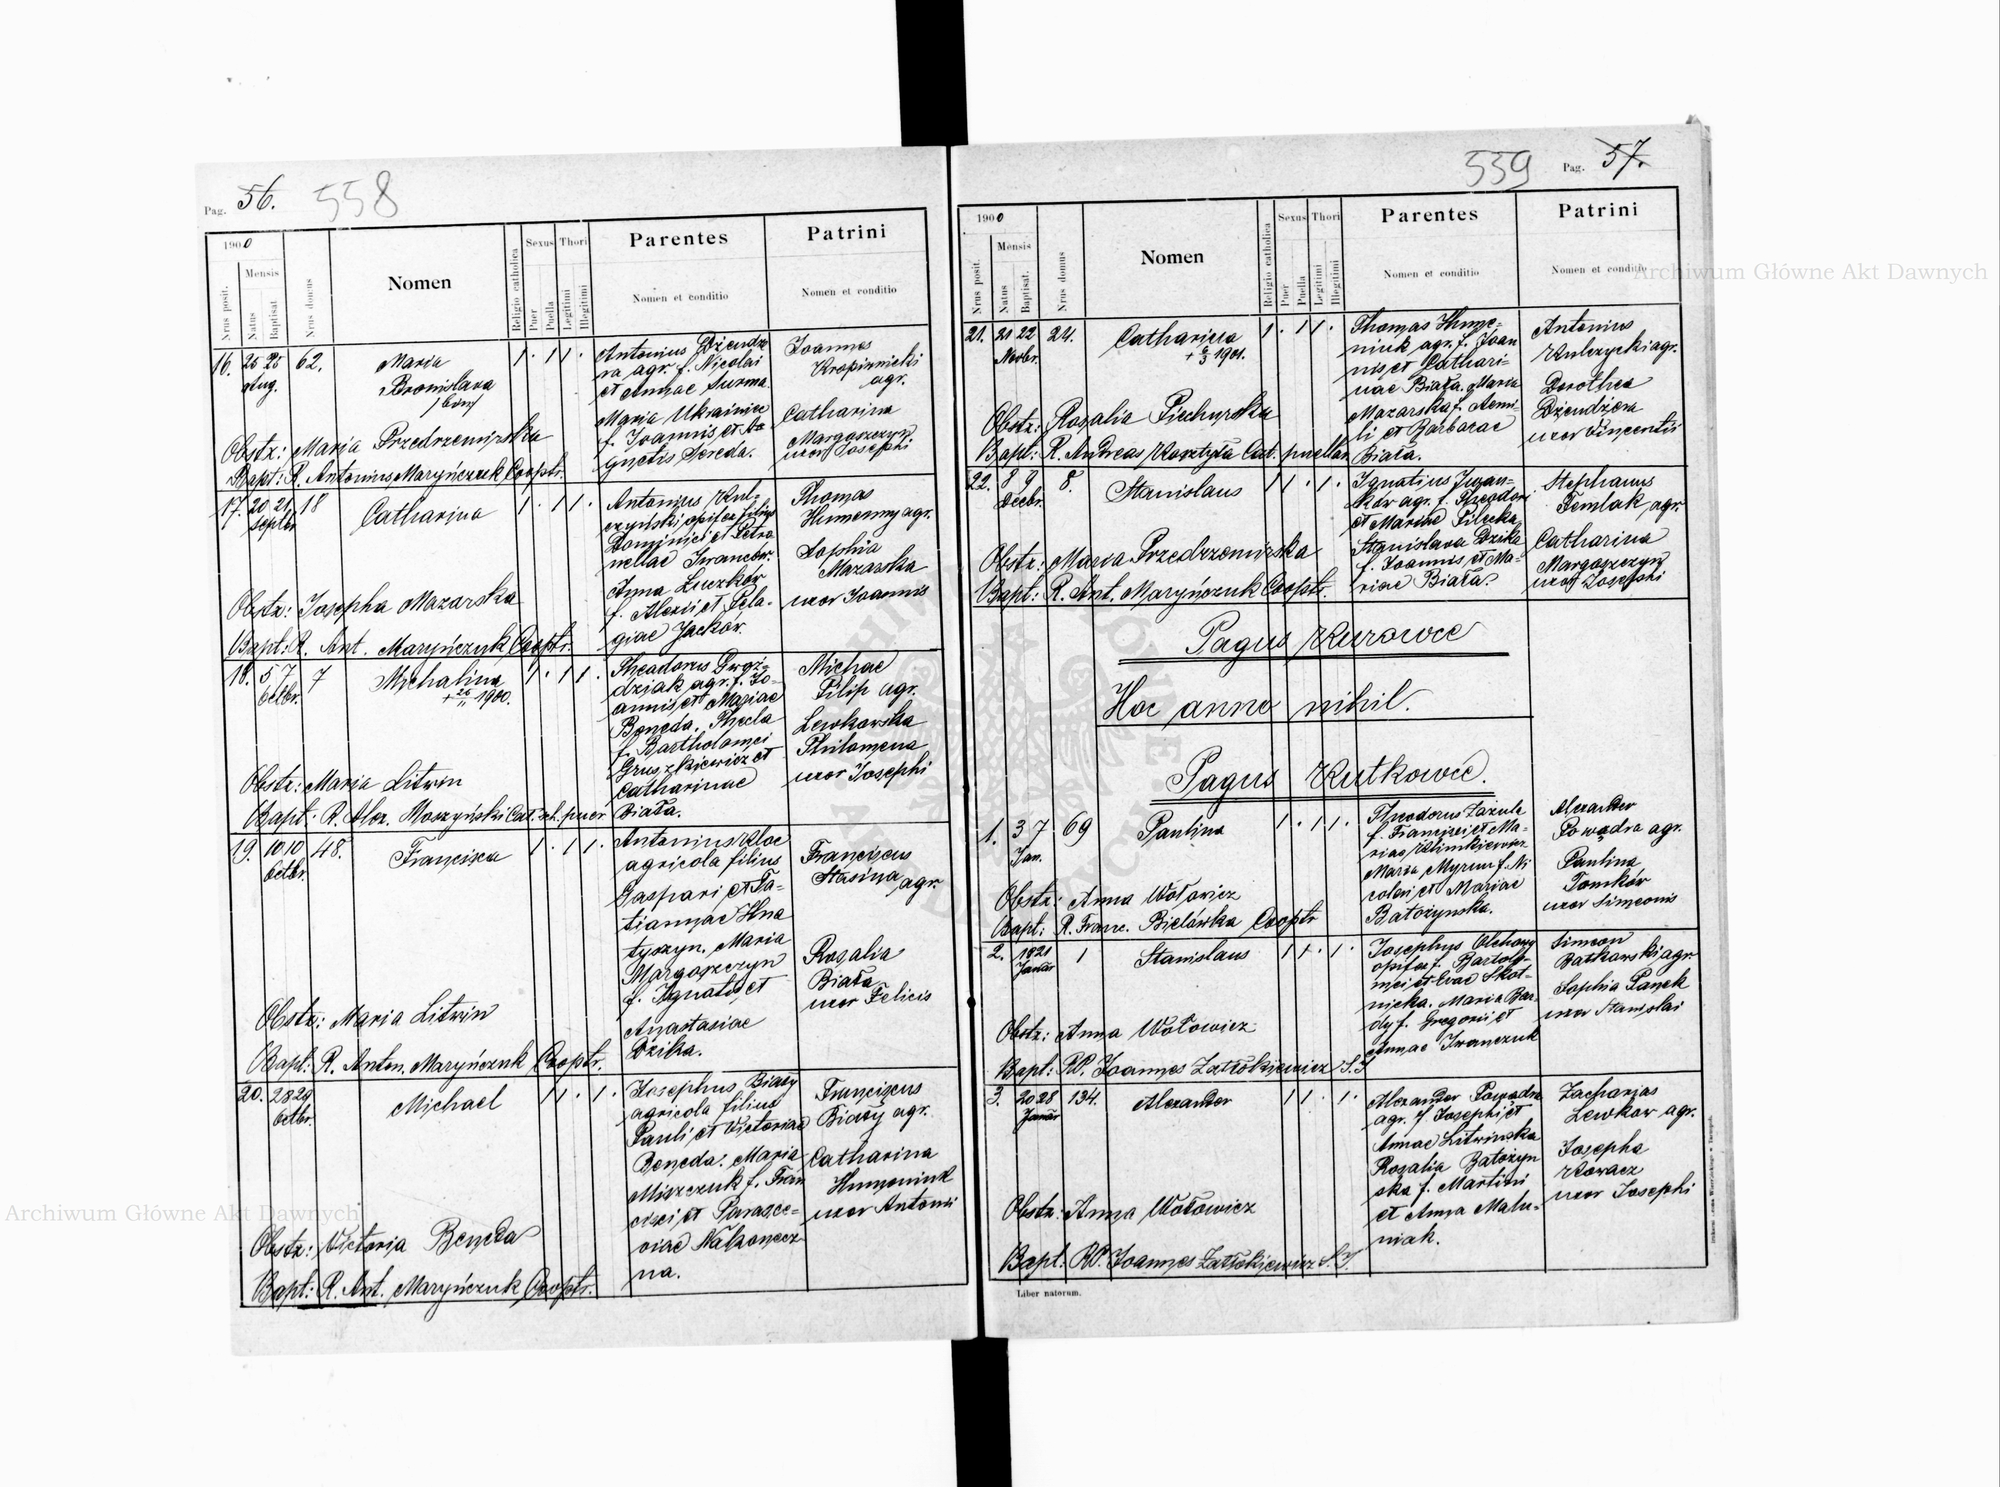 Pag. 56. 558
1900
Nrus posit.
Mensis
Natus
Baptisat.
Nrus domus
Nomen
Religio catholica
Sexus
Puer
Puella
Thori
Legitimi
Illegitimi
Parentes
Nomen et conditio
Patrini
Nomen et conditio
16. 25 25 62. Maria
Aug. Bronislava
/bin/
1 . 1 1 .
Antonius Dżendże
ra agr. f. Nicolai
et Annae Surma.
Maria Ukrainiec
f. Joannis et A
gnetis Sereda.
Joannes
Kropiwnicki
agr.
Catharina
Margoszczyn
uxor Josephi
Obstr: Maria Przedrzemirska
Bapt: R. Antonius Maryńczuk Cooptr.
17. 20 21 18 Catharina
Septbr.
1 . 1 1 .
Antonius Kul-
czyński opifex filius
Dominici et Petro
nellae Iwanców.
Anna Luczków
f. Alexii et Pela-
giae Jacków.
Thomas
Humenny agr.
Sophia
Mazarska
uxor Joannis
Obstr: Josepha Mazarska
Bapt: R. Ant. Maryńczuk Cooptr.
18. 5 7 7 Michalina
Octbr. + 25/11 1900.
1 . 1 1 .
Theodorus Gwoź-
dziak agr. f. Jo-
annis et Mariae
Beneda. Thecla
f. Bartholomei
Gruszkiewicz et
Catharinae
Biała.
Michael
Filip agr.
Lewkowska
Philomena
uxor Josephi
Obstr: Maria Litwin
Bapt: R. Alex. Moszyński Cat. sch. puer
19. 10 10 48. Francisca
Octbr.
1 . 1 1 .
Antonius Kloc
agricola filius
Gaspari et Ta-
tiannae Hna
tyszyn. Maria
Margoszczyn
f. Ignatii et
Anastasiae
Dzika.
Franciscus
Stasina agr.
Rosalia
Biała
uxor Felicis
Obstr: Maria Litwin
Bapt: R. Anton. Maryńczuk Cooptr.
20. 28 29 Michael
Octbr.
1 1 . 1 .
Josephus Biały
agricola filius
Pauli et Victoriae
Beneda. Maria
Miszczuk f. Fran
cisci et Parasce-
viae Nakonecz
na.
Franciscus
Biały agr.
Catharina
Humeniuk
uxor Antonii
Obstr: Victoria Beneda
Bapt: R. Ant. Maryńczuk Cooptr.
559 Pag. 57.
1900
Nrus posit.
Mensis
Natus
Baptisat.
Nrus domus
Nomen
Religio catholica
Sexus
Puer
Puella
Thori
Legitimi
Illegitimi
Parentes
Nomen et conditio
Patrini
Nomen et conditio
21. 21 22 24. Catharina
Novbr. 1901.
1 . 1 1 .
Thomas Hume-
niuk agr. f. Joan
nis et Cathari-
nae Biała. Maria
Mazarska f. Aemi-
li et Barbarae
Biała.
Antonius
Kulczycki agr.
Dorothea
Dżendżera
uxor Vincentii
Obstr: Rosalia Piechurska
Bapt: R. Andreas Kosztyła Cat. puellar.
22. 8 9 8. Stanislaus
Decbr.
1 1 . 1 .
Ignatius Iwan-
ków agr. f. Theodori
et Mariae Pilecka
Stanislava Dzika
f. Joannis et Ma-
riae Biała.
Stephanus
Femlak agr.
Catharina
Margoszczyn
uxor Josephi
Obstr: Maria Przedrzemirska
Bapt: R. Ant. Maryńczuk Cooptr.
Pagus Kurowce
Hoc anno nihil.
Pagus Kutkowce.
1. 3 7 69 Paulina
Jan.
1 . 1 1 .
Theodorus Zazula
f. Francisci et Ma-
riae Klimkiewicz
Maria Myrun f. Ni
colai et Mariae
Batożynska.
Alexander
Powądra agr.
Paulina
Tomków
uxor Simeonis
Obstr: Anna Wołowicz
Bapt: R. Franc. Bielówka Cooptr
2. 18 21 1 Stanislaus
Januar
1 1 . 1 .
Josephus Olchowy
opifex f. Bartolo-
mei et Evae Skot-
nicka. Maria Bar-
dy f. Gregorii et
Annae Iwanczuk
Simeon
Batkowski agr
Sophia Panek
uxor Stanislai
Obstr: Anna Wołowicz
Bapt: RP. Joannes Zatłokiewicz S.J
3. 20 28 134. Alexander
Januar
1 1 . 1 .
Alexander Powądra
agr. f. Josephi et
Annae Litwinska
Rosalia Batożyn
ska f. Martini
et Anna Malu-
niak.
Zacharias
Lewkow agr.
Josepha
Kowacz
uxor Josephi
Obstr: Anna Wołowicz
Bapt: RP. Joannes Zatłokiewicz S.J.
Liber natorum.
Archiwum Główne Akt Dawnych
Archiwum Główne Akt Dawnych